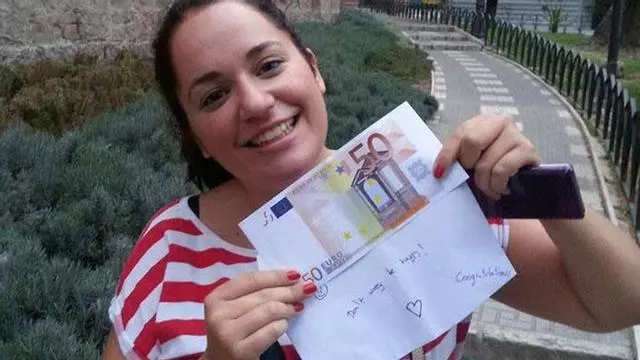 50
50 EURO
Don't worry be happy!
Congratulations